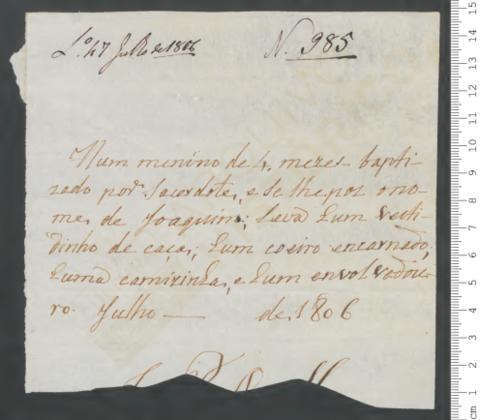 Lº 47 Julho de 1806 N. 985
Hum menino de 4 mezes bapti-
zado por Sacerdote, e se lhe poz o no-
me, de Joaquim; Leva hum vesti-
dinho de caça, hum coeiro encarnado,
huma camizinha, e hum envolvedou-
ro. Julho — de 1806